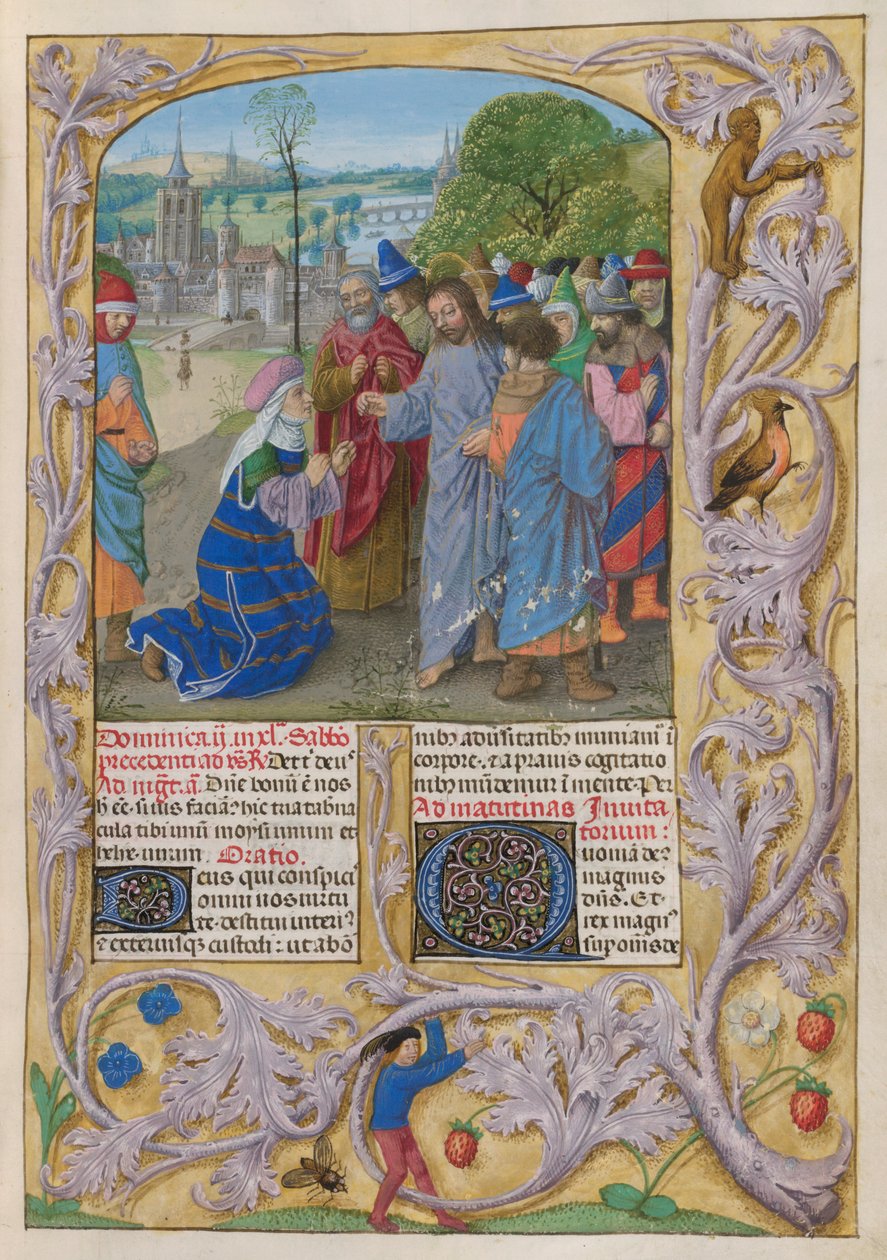 Dominica ij. in xl.ᵃ Sabbõ
precedenti ad vs R̸ Dett deuˢ
Ad mgt. ã. Dñe bonũ ẽ nos
h eẽ. si uis faciaꝰ hic tria tab̃na
cula tibi unũ moysi unum et
helye. unum. Oratio.
Deus qui conspicˢ
omni nos uirtu
te. destitui interiˢ
⁊ exteriusqꝫ custodi: ut ab oĩ
nibꝫ aduersitatibꝫ muniamꝰ ĩ
corpore. ⁊ a prauis cogitatio
nibꝫ mũdemur ĩ mente. Per
Ad matutinas Inuita
torium:
Quoniã deꝰ
magnus
dñs. Et
rex magnꝰ
sup omĩs de